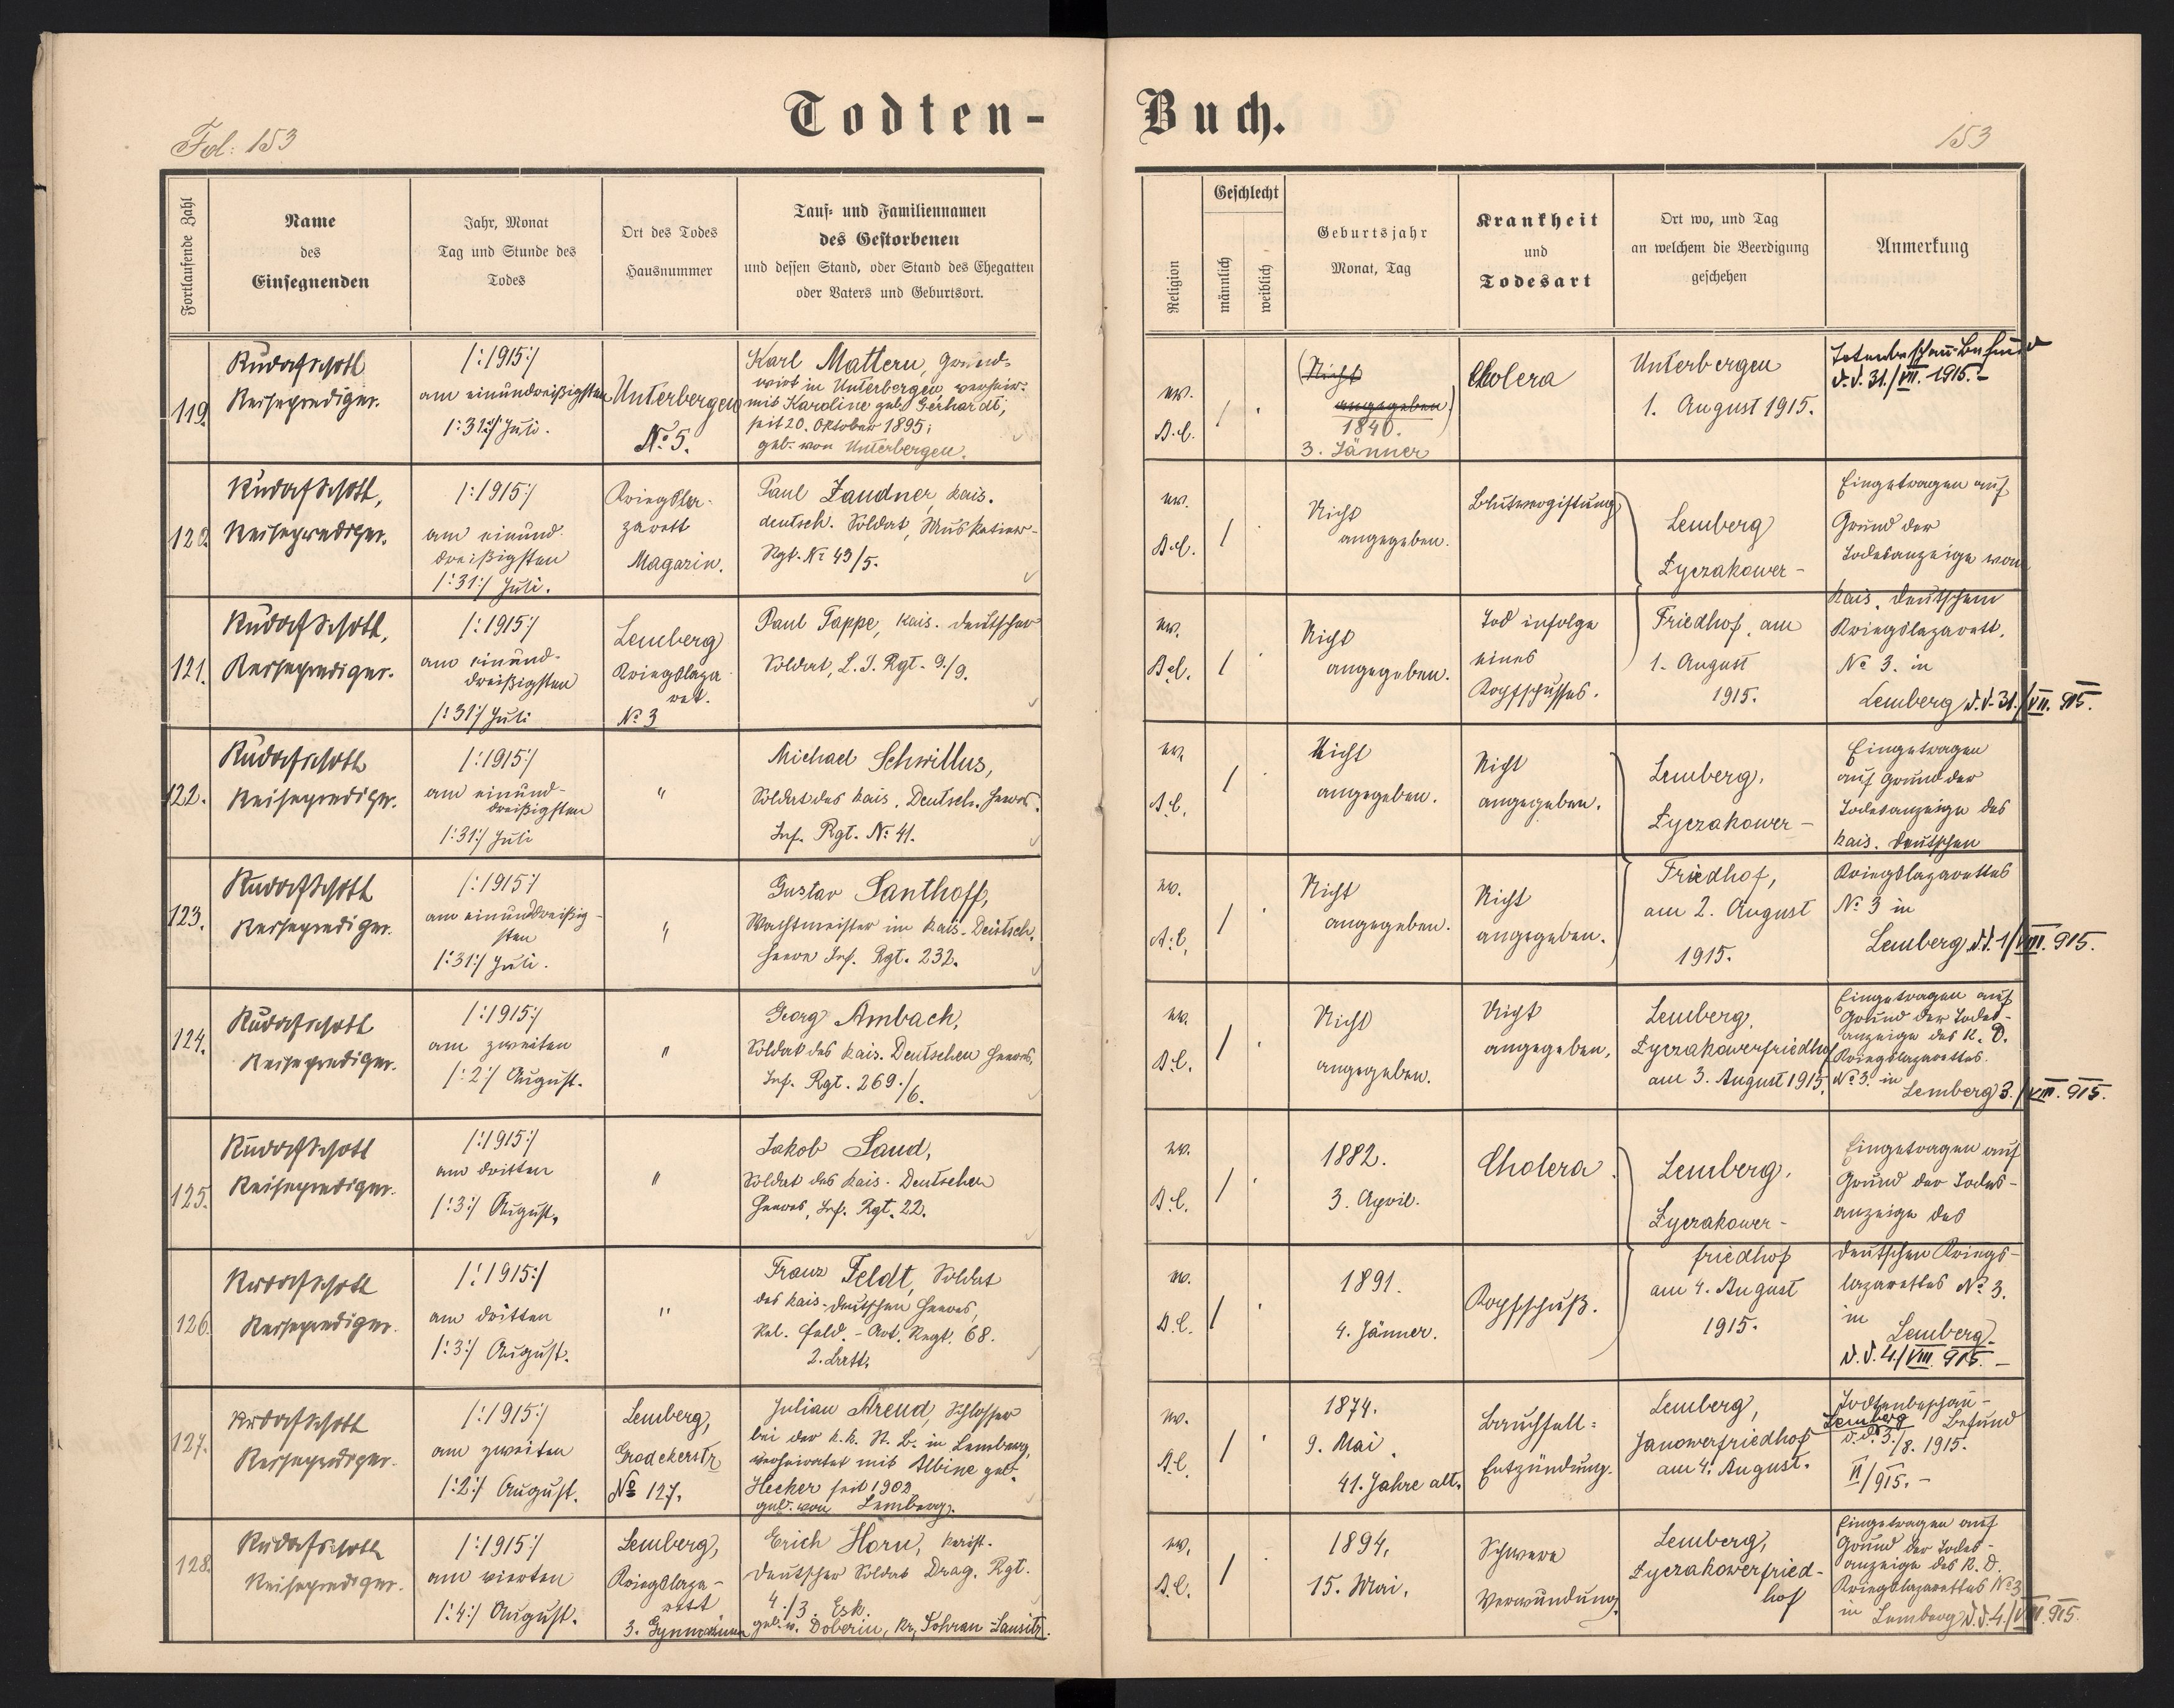 Todten-
Buch.
Fol: 153
153
Fortlaufende Zahl
Name
des
Einsegnenden
Jahr, Monat
Tag und Stunde des
Todes
Ort des Todes
Hausnummer
Tauf- und Familiennamen
des Gestorbenen
und dessen Stand, oder Stand des Ehegatten
oder Vaters und Geburtsort.
Religion
Geschlecht
männlich
weiblich
Geburtsjahr
Monat, Tag
Krankheit
und
Todesart
Ort wo, und Tag
an welchem die Beerdigung
geschehen
Anmerkung
119.
Rudolf Schott
Reiseprediger.
/:1915:/
am einunddreißigsten
/:31:/ Juli.
Unterbergen
No 5.
Karl Mattern, Grund-
wirt in Unterbergen, verheir.
mit Karoline geb. Gerhardt,
seit 20. Oktober 1895;
geb. von Unterbergen.
ev.
A.C.
/
(Nicht
angegeben)
1840.
3. Jänner
Cholera
Unterbergen
1. August 1915.
Totenbeschau-Befund
d.d. 31./VII. 1915.-
120.
Rudolf Schott,
Reiseprediger.
/:1915:/
am einund-
dreißigsten
/:31:/ Juli.
Kriegsla-
zarett
Magazin.
Paul Zaudner, kais.
deutsch. Soldat, Musketier-
Rgt. No 43/5.
ev.
A.C.
/
Nicht
angegeben.
Blutvergiftung
Lemberg
Lyczakower-
Eingetragen auf
Grund der
Todesanzeige vom
kais. deutschem
121.
Rudolf Schott,
Reiseprediger.
/:1915:/
am einund-
dreißigsten
/:31:/ Juli
Lemberg
Kriegslaza-
ret.
No 3
Paul Tappe, kais. deutscher
Soldat, L. I. Rgt. 9./9.
ev.
A.C.
/
Nicht
angegeben.
Tod infolge
eines
Kopfschusses.
Friedhof, am
1. August
1915.
Kriegslazarett.
No 3. in
Lemberg d.d. 31./VII. 915.
122.
Rudolf Schott
Reiseprediger.
/:1915:/
am einund-
dreißigsten
/:31:/ Juli
"
Michael Schwillus,
Soldat des kais. Deutsch. Heeres.
Inf. Rgt. No 41.
ev.
A.C.
/
Nicht
angegeben.
Nicht
angegeben.
Lemberg,
Lyczakower-
Eingetragen
auf Grund der
Todesanzeige des
kais. deutschen
123.
Rudolf Schott
Reiseprediger.
/:1915:/
am einunddreißig-
sten
/:31:/ Juli.
"
Gustav Santhoff,
Wachtmeister im kais. Deutsch.
Heere Inf. Rgt. 232.
ev.
A.C.
/
Nicht
angegeben.
Nicht
angegeben.
Friedhof,
am 2. August
1915.
Kriegslazarettes
No 3 in
Lemberg d.d. 1/VIII. 915.
124.
Rudolf Schott
Reiseprediger.
/:1915:/
am zweiten
/:2:/ August.
"
Georg Ambach,
Soldat des kais. Deutschen Heeres,
Inf. Rgt. 269./6.
ev.
A.C.
/
Nicht
angegeben.
Nicht
angegeben.
Lemberg,
Lyczakowerfriedhof
am 3. August 1915.
Eingetragen auf
Grund der Todes-
anzeige des K. D.
Kriegslazarettes.
No 3. in
Lemberg 3./VIII. 915.
125.
Rudolf Schott
Reiseprediger.
/:1915:/
am dritten
/:3:/ August.
"
Jakob Saud,
Soldat des kais. Deutschen
Heeres, Inf. Rgt. 22.
ev.
A.C.
/
1882.
3. April.
Cholera.
Lemberg.
Lyczakower-
Eingetragen auf
Grund der Todes-
anzeige des
126.
Rudolf Schott
Reiseprediger.
/:1915:/
am dritten
/:3:/ August.
"
Franz Feldt, Soldat
des kais. deutschen Heeres,
Feld.-Art. Regt. 68.
2. Batt.
ev.
A.C.
/
1891.
4. Jänner.
Kopfschuß.
friedhof
am 4. August
1915.
deutschen Kriegs-
lazarettes No 3.
in
Lemberg
d.d. 4./VIII. 915.-
127.
Rudolf Schott
Reiseprediger.
/:1915:/
am zweiten
/:2:/ August.
Lemberg,
Grodekerstr
No 127.
Julian Arend, Schlosser
bei der k.k. St. B. in Lemberg,
verheiratet mit Albine geb.
Hecher seit 1902
geb. von Lemberg.
ev.
A.C.
/
1874.
9. Mai.
41. Jahre alt.
Bauchfell-
Entzündung.
Lemberg,
Janowerfriedhof
am 4. August.
Todtenbeschau-
Lemberg Befund
d.d. 3./8. 1915.
VI/915.-
128.
Rudolf Schott
Reiseprediger.
/:1915:/
am vierten
/:4:/ August.
Lemberg,
Kriegslaza-
rett
3. Gymnasium
Erich Horn, kais.
deutscher Soldat Drag. Rgt.
4./3. Esk.
geb. v. Doberin, Kr. Sohran-Lausitz.
ev.
A.C.
/
1894.
15. Mai.
Schwere
Verwundung.
Lemberg,
Lyczakowerfried-
hof
Eingetragen auf
Grund der Todes-
anzeige des K. D.
Kriegslazarettes No 3
in Lemberg d.d. 4./VIII. 915.